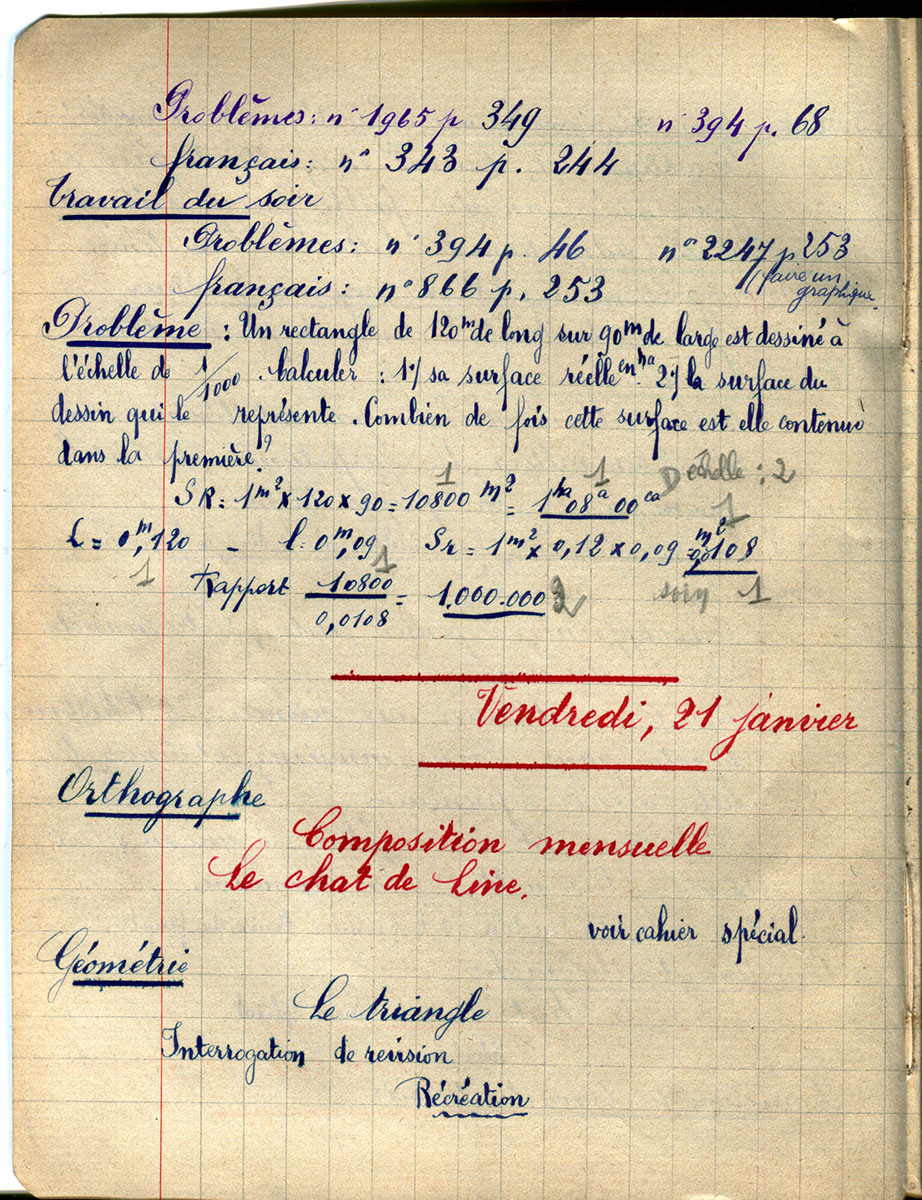 Problèmes: n° 1965 p 349 n° 394 p. 68
français: n° 343 p. 244
travail du soir
Problèmes: n° 394 p. 46 n° 2247 p 253
(faire un
graphique
français: n° 866 p. 253
Problème : Un rectangle de 120m de long sur 90m de large est dessiné à
l'échelle de 1/1000. Calculer : 1°/ sa surface réelle en ha. 2°/ la surface du
dessin qui le représente. Combien de fois cette surface est elle contenue
dans la première?
1 1 échelle : 2
SR = 1m² x 120 x 90 = 10800 m² = 1ha 08a 00ca
1
L = 0m,120 - l: 0m,09 Sr = 1m² x 0,12 x 0,09 = 0,0108 m²
1 1
Rapport 10800/0,0108 = 1.000.000 2 soin 1
Vendredi, 21 janvier
Orthographe
Composition mensuelle
Le chat de Line.
voir cahier spécial.
Géométrie
Le triangle
Interrogation de revision
Récréation